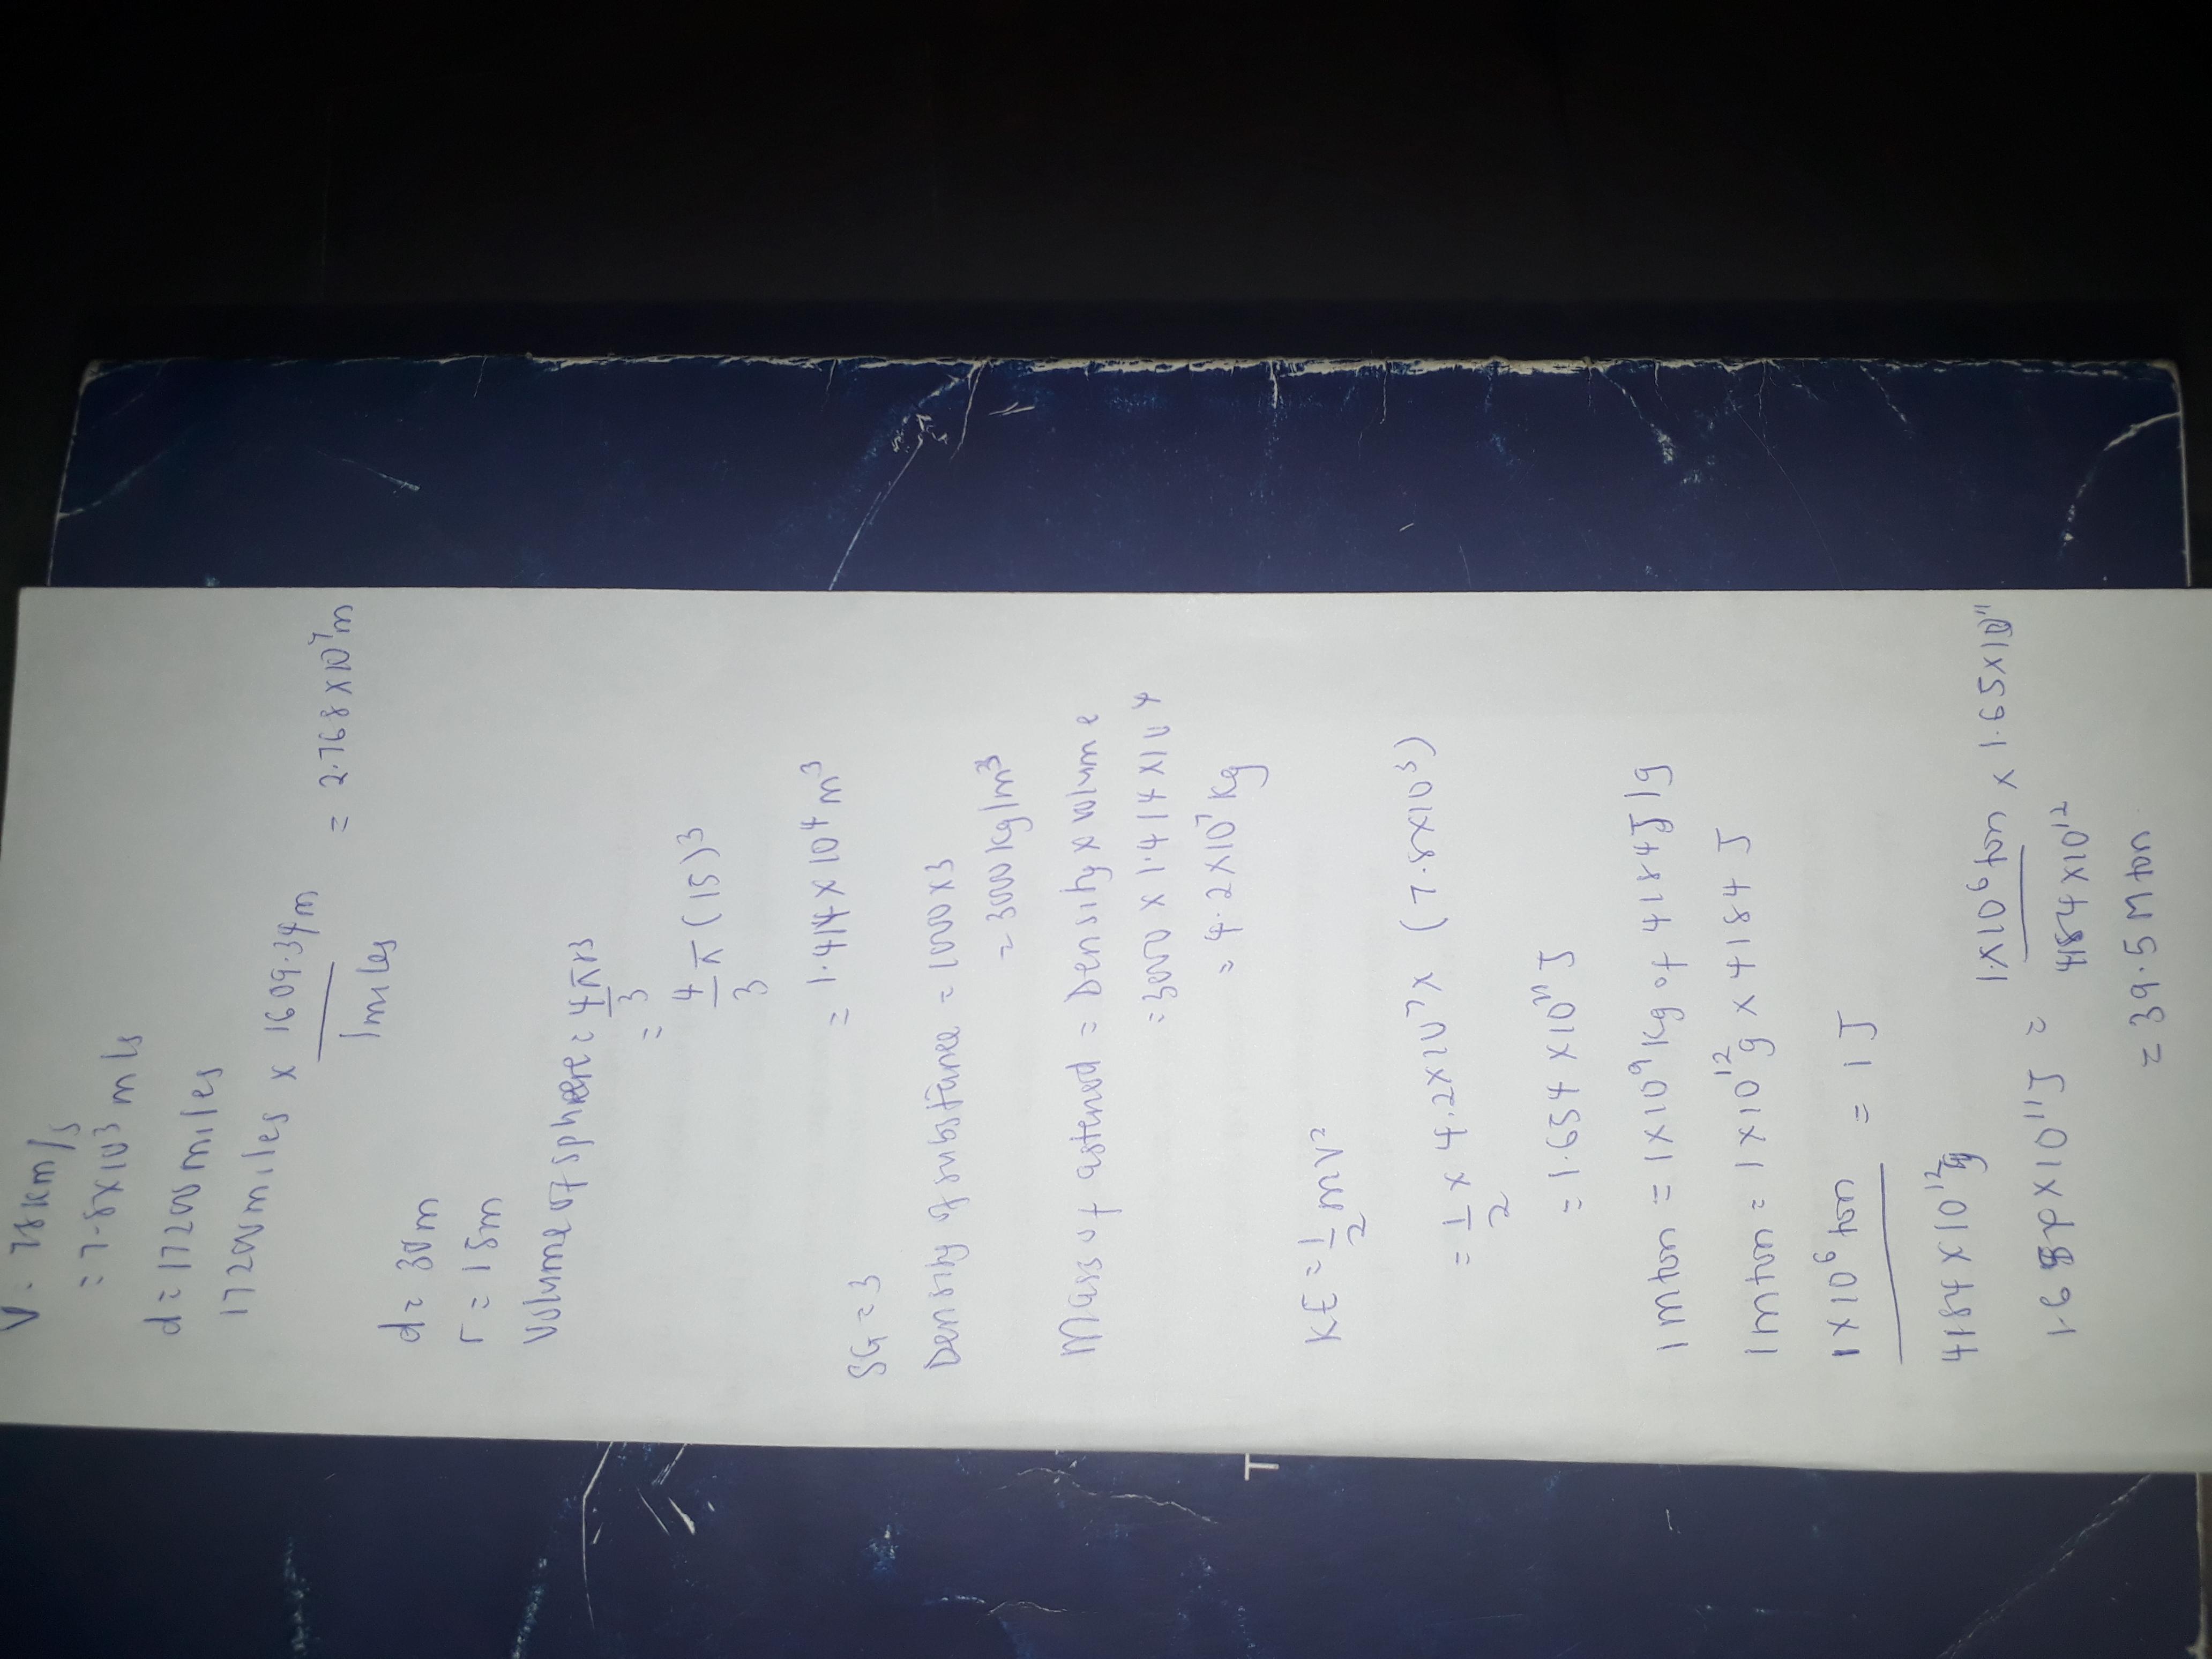 V. 78km/s
= 7.8x10³ m/s
d = 17200 miles
17200 miles x 1609.34m / 1miles = 2.768 x 10⁷m
d = 30m
r = 15m
Volume of sphere = 4πr³/3
= 4/3 π (15)³
= 1.414 x 10⁴ m³
SG = 3
Density of substance = 1000 x 3
= 3000 kg/m³
Mass of asteriod = Density x volume
= 3000 x 1.414 x 10⁴
= 4.2 x 10⁷ kg
KE = 1/2 mv²
= 1/2 x 4.2x10⁷ x (7.8x10³)
= 1.654 x 10¹¹ J
1 mton = 1x10⁹ kg of 4184J/g
1 mton = 1x10¹² g x 4184 J
1x10⁶ ton / 4184 x 10¹² g = 1 J
x10¹¹J = 1x10⁶ ton / 4184 x10¹² x 1.65x10¹¹
= 39.5 M ton
T